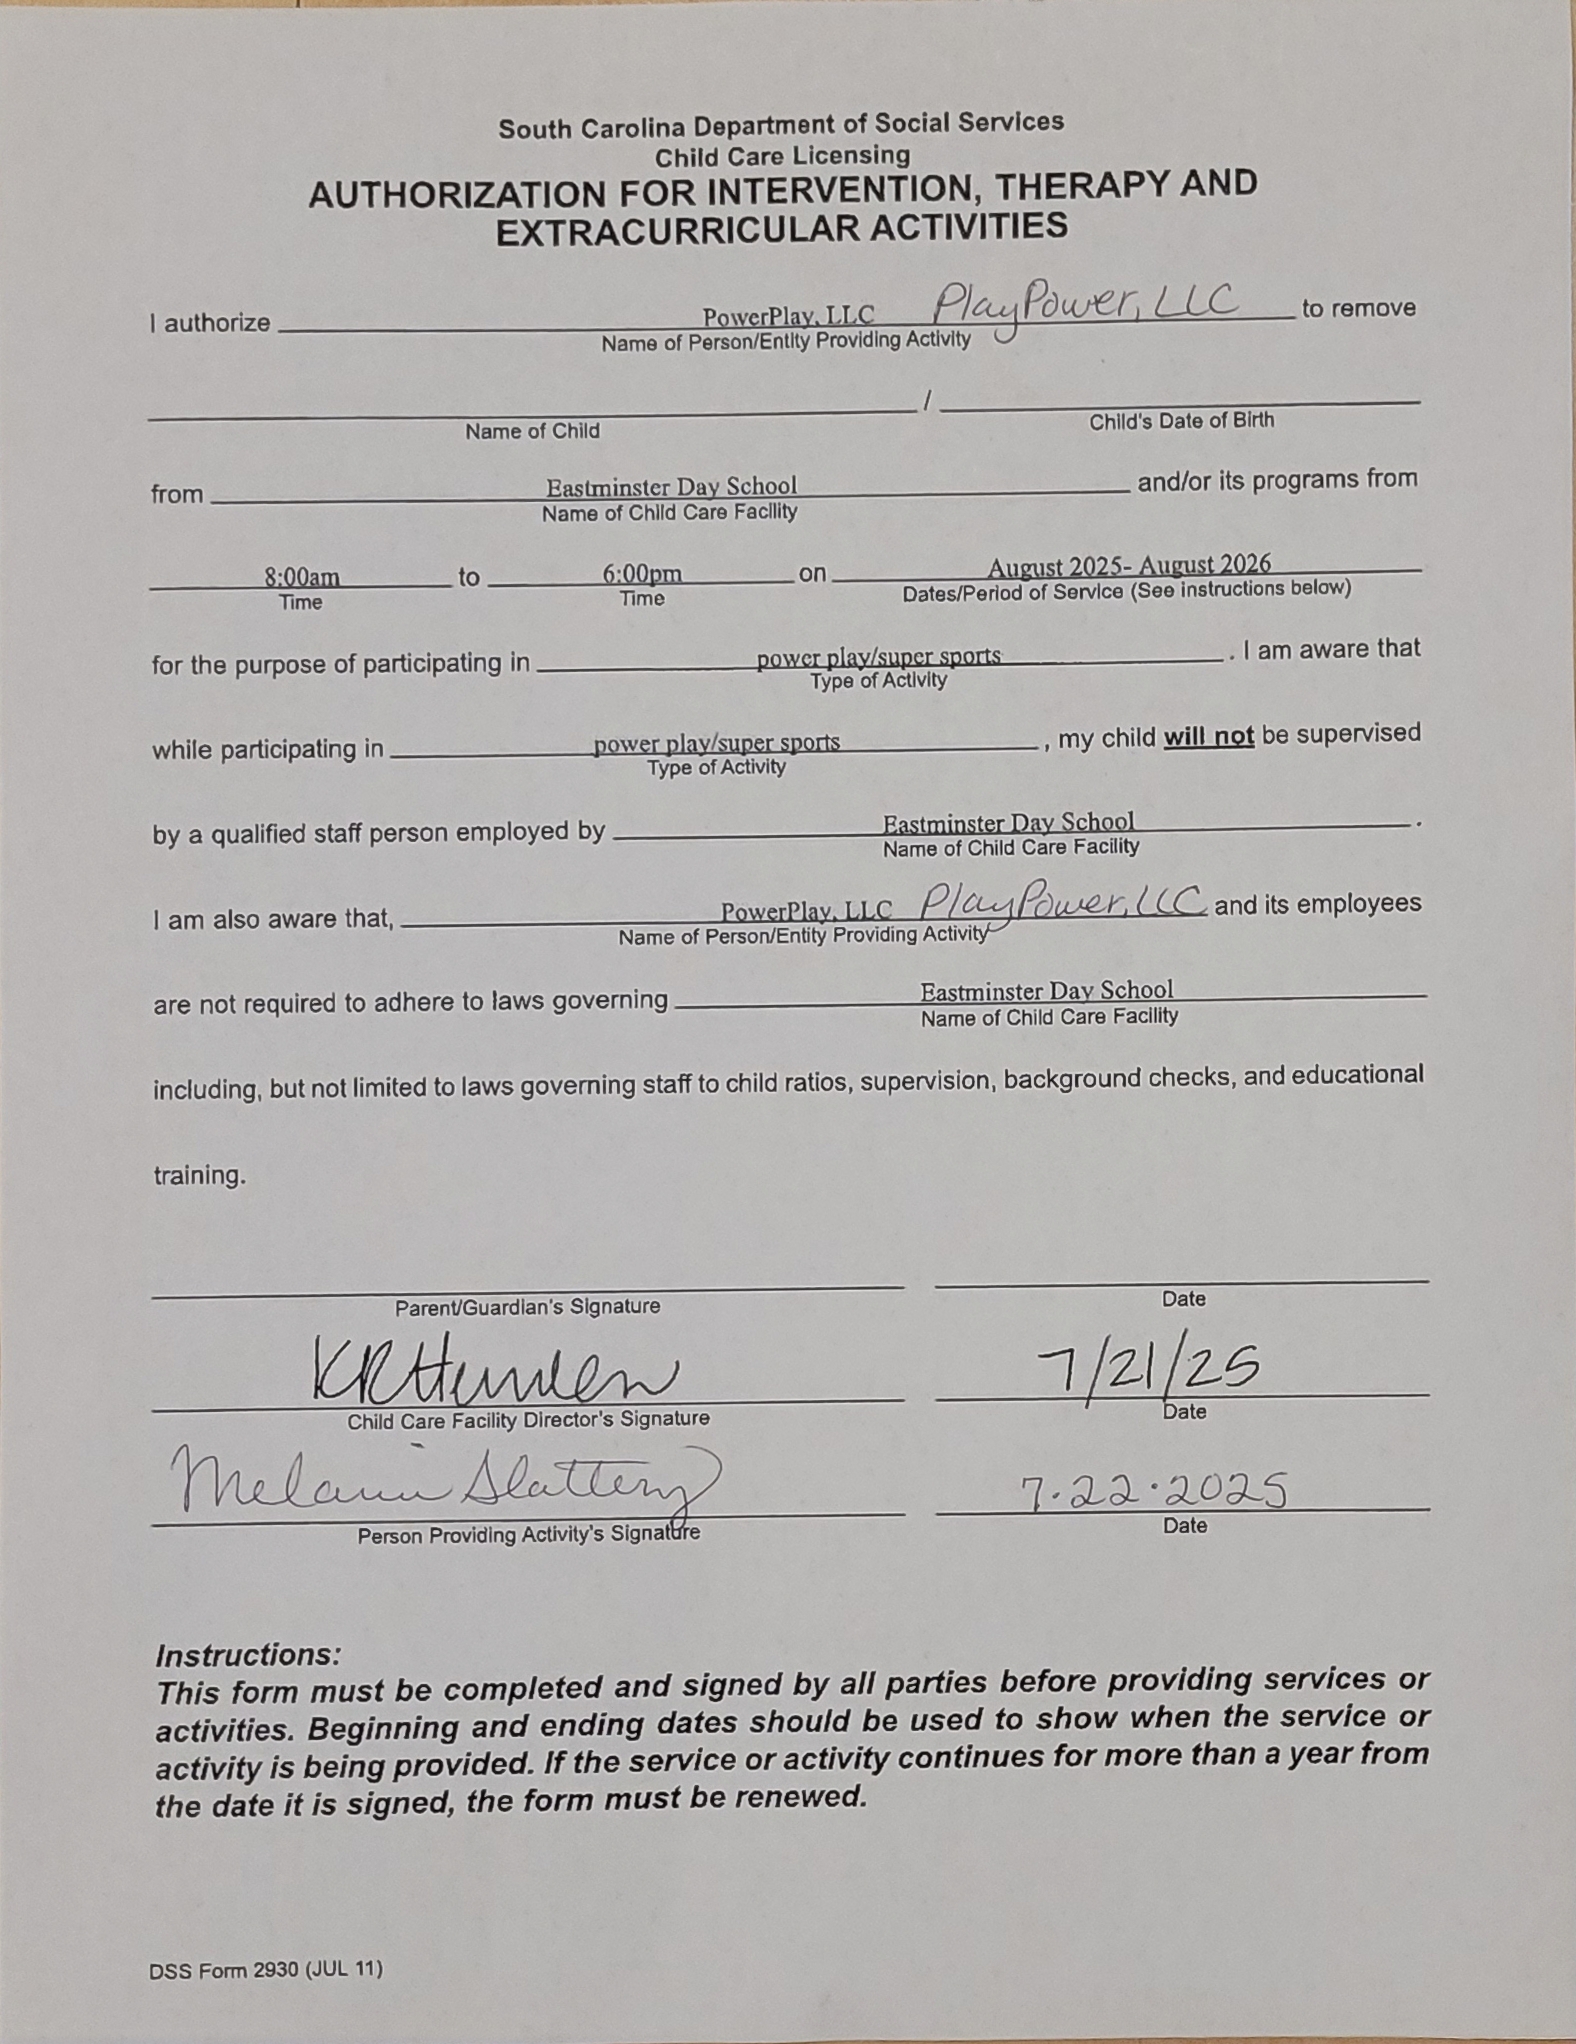 South Carolina Department of Social Services
Child Care Licensing
AUTHORIZATION FOR INTERVENTION, THERAPY AND
EXTRACURRICULAR ACTIVITIES
I authorize PowerPlay, LLC PlayPower, LLC to remove
Name of Person/Entity Providing Activity
/
Name of Child Child's Date of Birth
from Eastminster Day School and/or its programs from
Name of Child Care Facility
8:00am to 6:00pm on August 2025- August 2026
Time Time Dates/Period of Service (See instructions below)
for the purpose of participating in power play/super sports . I am aware that
Type of Activity
while participating in power play/super sports , my child will not be supervised
Type of Activity
by a qualified staff person employed by Eastminster Day School .
Name of Child Care Facility
I am also aware that, PowerPlay, LLC PlayPower, LLC and its employees
Name of Person/Entity Providing Activity
are not required to adhere to laws governing Eastminster Day School
Name of Child Care Facility
including, but not limited to laws governing staff to child ratios, supervision, background checks, and educational
training.
Parent/Guardian's Signature Date
7/21/25
Child Care Facility Director's Signature Date
Melanie Slattery 7.22.2025
Person Providing Activity's Signature Date
Instructions:
This form must be completed and signed by all parties before providing services or
activities. Beginning and ending dates should be used to show when the service or
activity is being provided. If the service or activity continues for more than a year from
the date it is signed, the form must be renewed.
DSS Form 2930 (JUL 11)